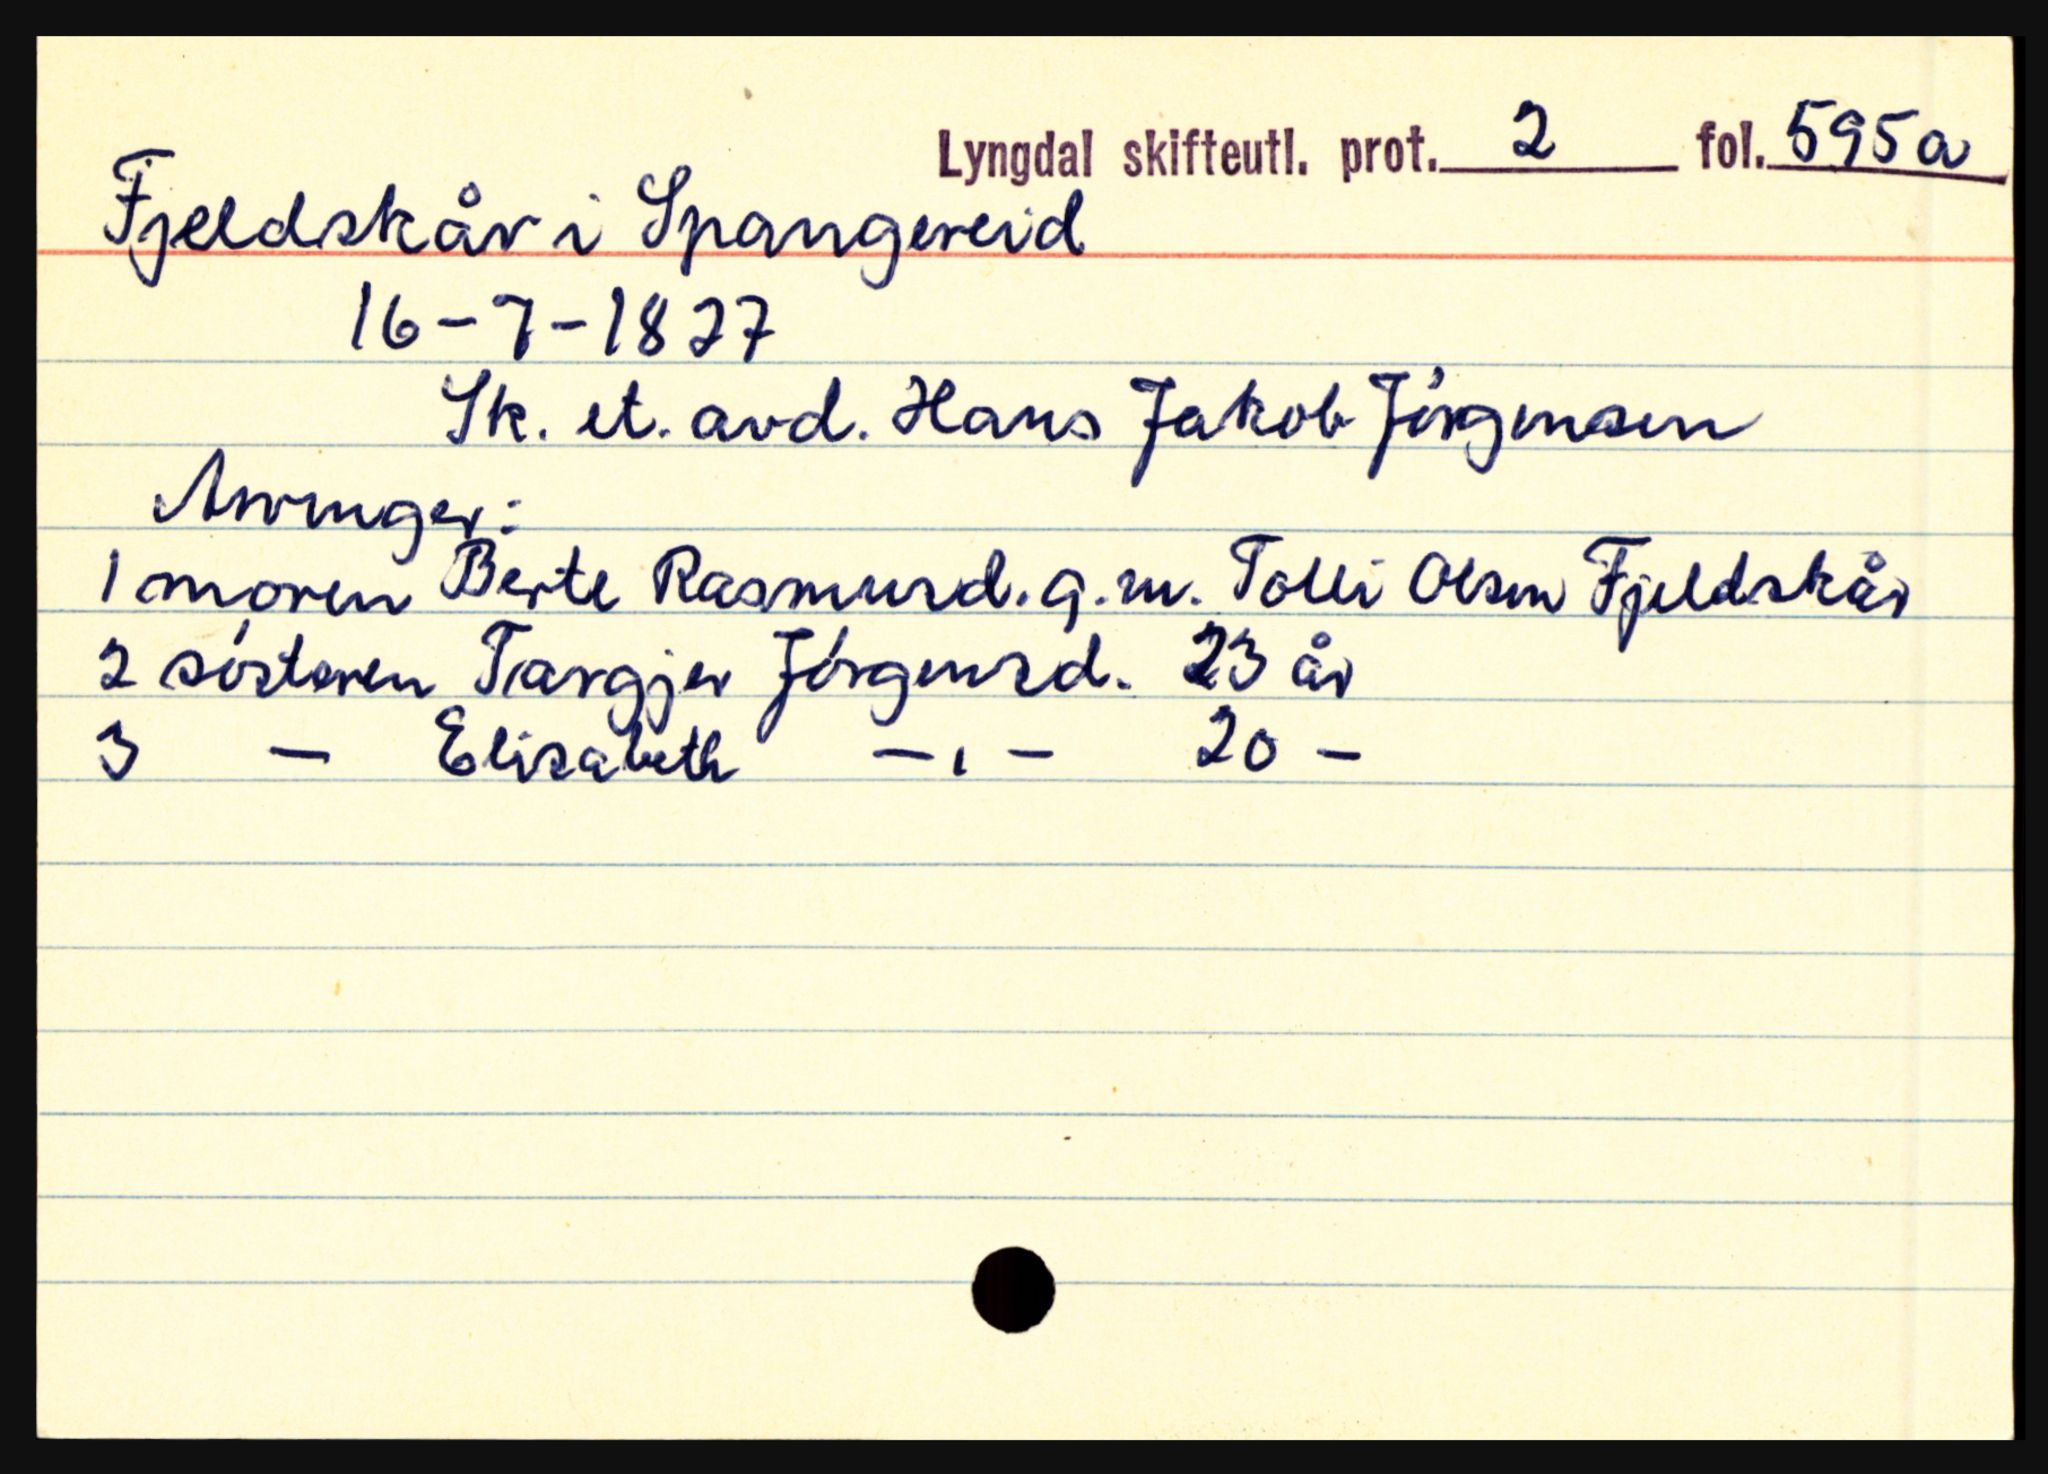 Lyngdal skifteutl. prot. 2 fol. 595a
Fjeldskår i Spangereid
16-7-1827
Sk. et. avd. Hans Jakob Jörgensen
Arvinger:
1 moren Berte Rasmusd. g.m. Tolli Olsen Fjeldskår
2 sösteren Targjer Jörgensd. 23 år
3 — Elisabeth —"— 20 —